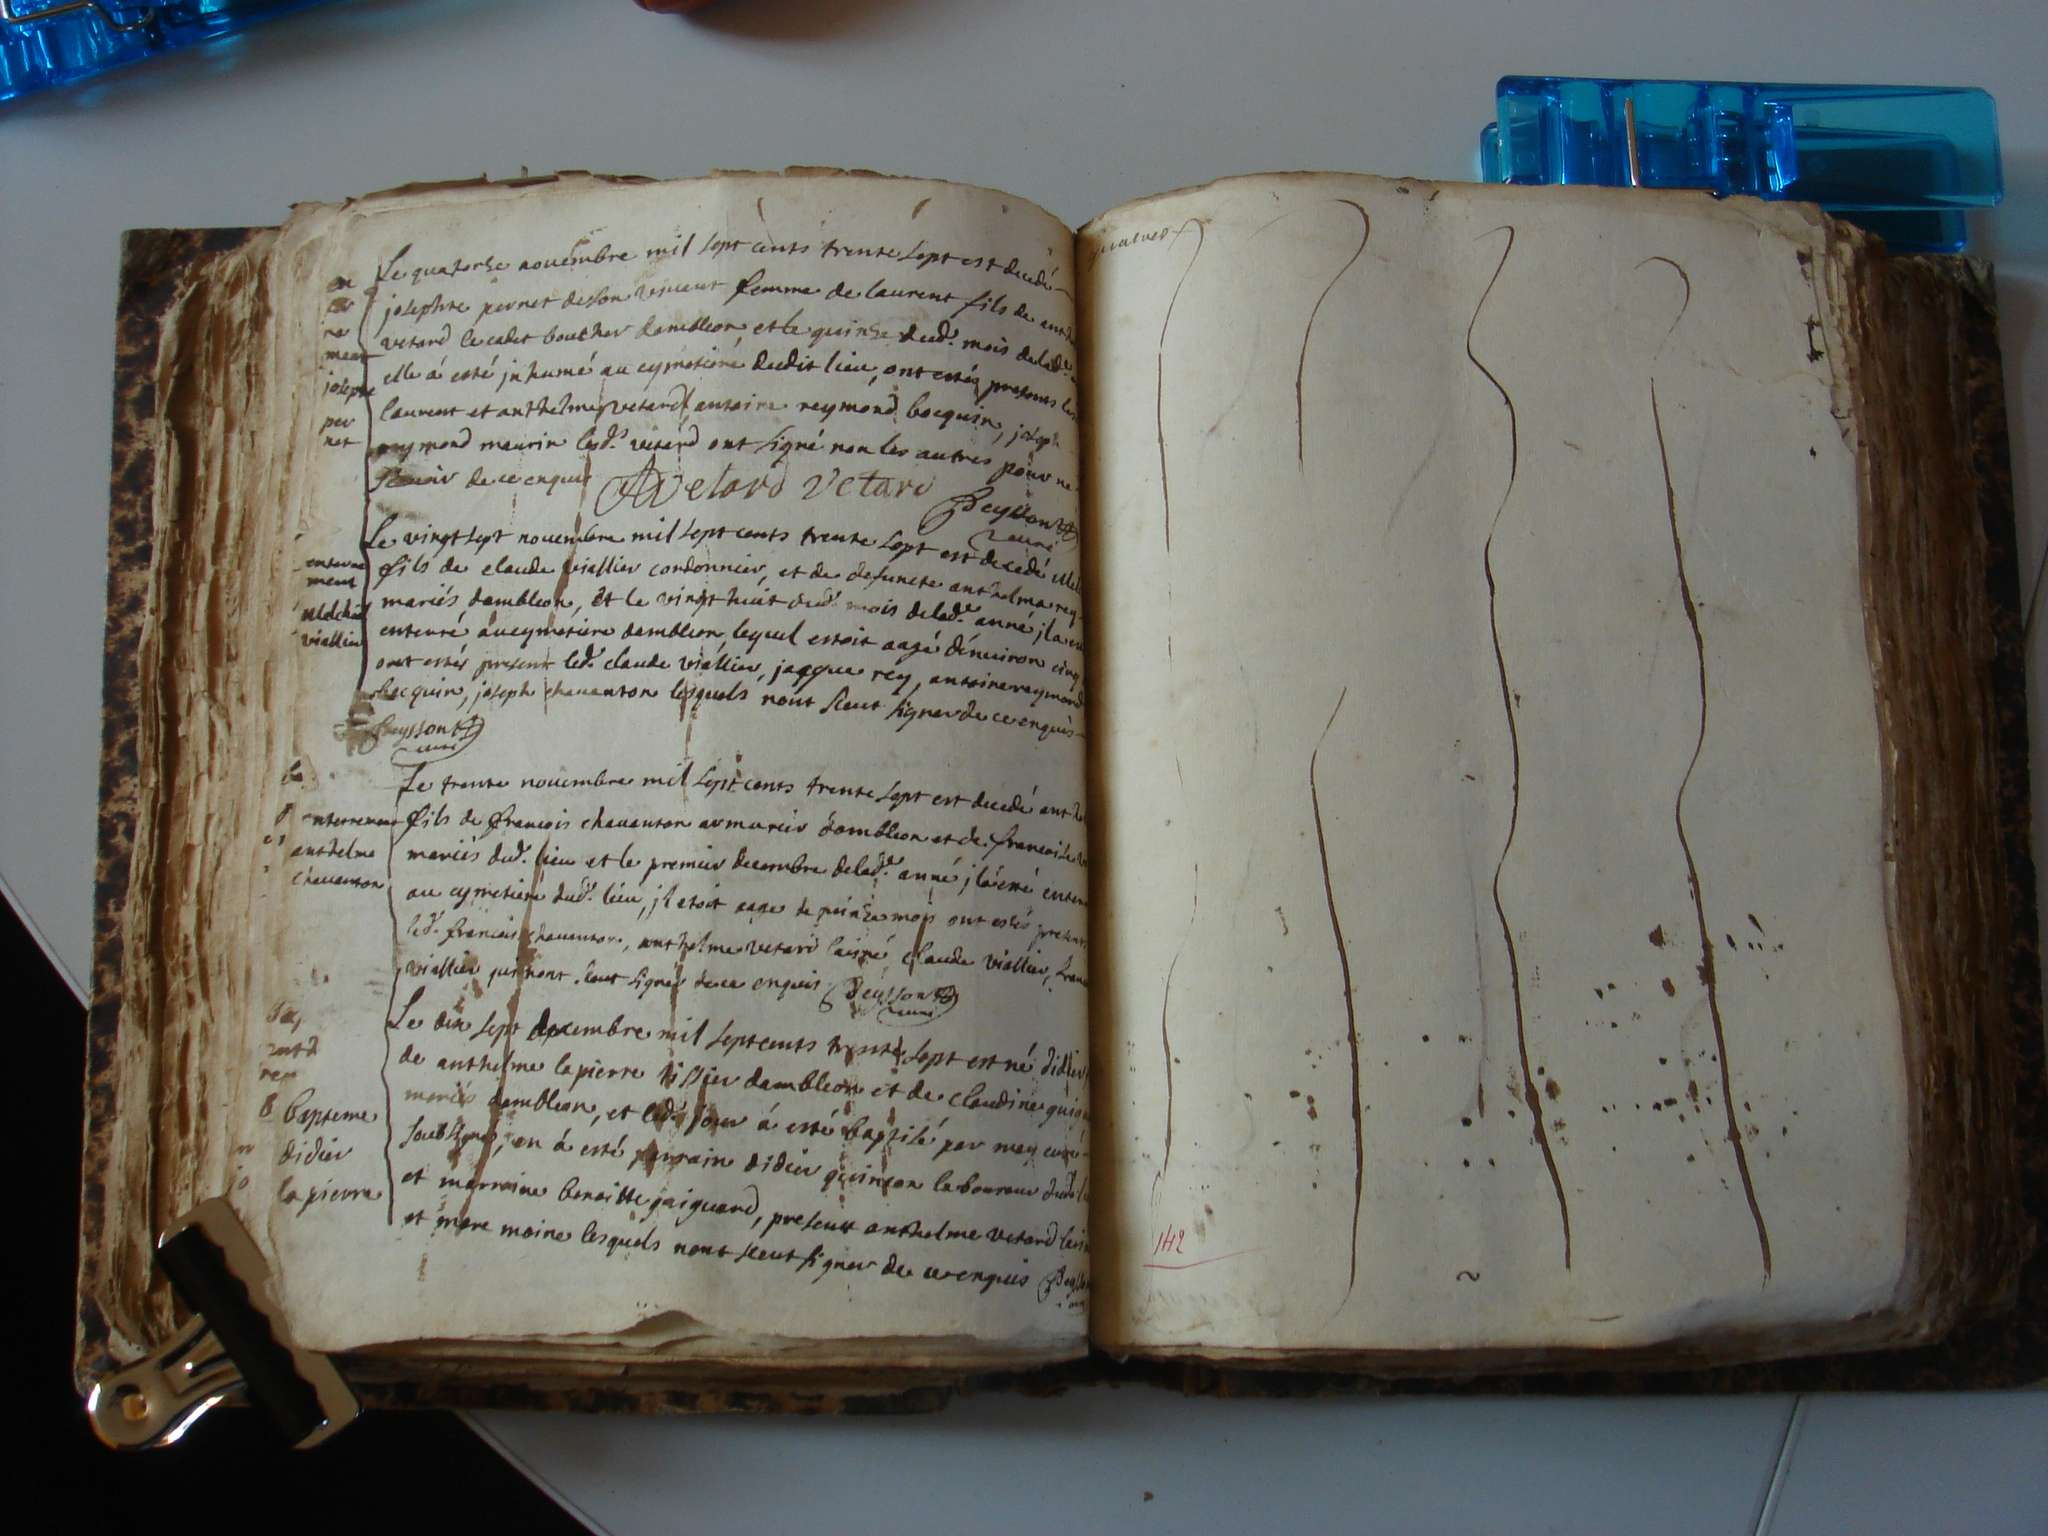 Le quatorse novembre mil sept cents trente sept est decedé
josephte pernet de son vivant femme de laurent fils de anth
vetard le cadet boucher dambleon et le quinse dud. mois delad.
elle á esté jnhumé au cymetieré dudit lieu, ont estés presents les
laurent et anthelme vetard, antoine reymond bocquin, joseph
reymond maurin lesd.s vetard ont signé non les autres pour ne
scavoir de ce enquis
Vetard Vetard
Peysson
curé
en
ter
re
ment
josepte
per
net
Le vingt sept novembre mil sept cents trente sept est decedé Mel
fils de claude viallier cordonnier, et de defuncte anthelma rey
mariés dambleon, et le vingt huit dud. mois delad.e anné jl a e
enterré au cymetiere dambleon, lequel estoit aagé dénviron cinq
ont estés present led. claude viallier, jacque rey, antoine reymond
bocquin, joseph chavanton lesquels nont sceut signer de ce enquis
Peysson
curé
enterre
ment
Melchio
viallier
Le trente novembre mil sept cents trente sept est decedé anthe
fils de francois chavanton armurier dambleon et de francoise
mariés dud. lieu et le premier decembre delad.e anné jl á esté enter
au cymetiere dud. lieu, jl etoit aagé de quinse mois ont estés presents
led. francois chavanton, anthelme vetard laisné, claude viallier, fran
viallier qui nont sceut signer de ce enquis Peysson
curé
enterrement
anthelme
chavanton
Le dix sept decembre mil sept cents trente sept est né didier
de anthelme lapierre tissier dambleon et de claudine guig
mariés dambleon, et led. jour á esté baptisé par moy curé
soubsigné, en á esté parrain didier quinson laboureur dud. l
et marraine benoitte guiguard, present anthelme vetard laisn
et mere moine lesquels nont sceut signer de ce enquis Peysson
curé
Bapteme
didier
lapierre
142